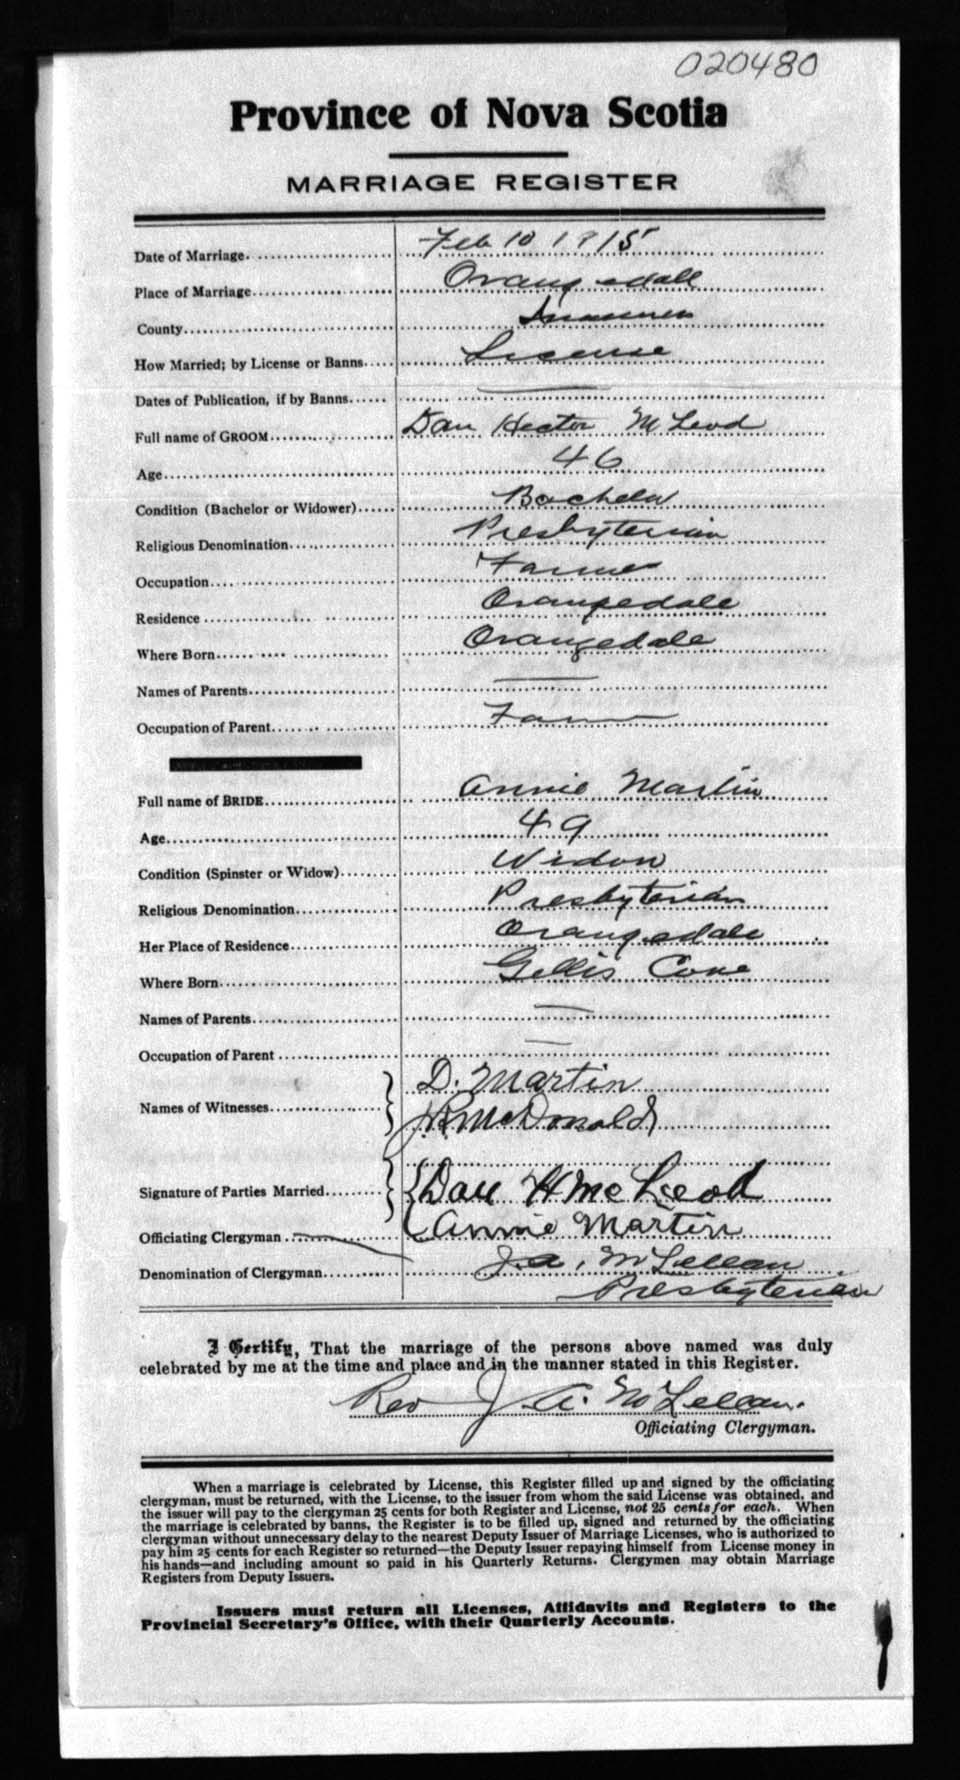 020480
Province of Nova Scotia
MARRIAGE REGISTER
Date of Marriage Feb 10 1915
Place of Marriage Orangedale
County Inverness
How Married; by License or Banns License
Dates of Publication, if by Banns —
Full name of GROOM Dan Hector McLeod
Age 46
Condition (Bachelor or Widower) Bachelor
Religious Denomination Presbyterian
Occupation Farmer
Residence Orangedale
Where Born Orangedale
Names of Parents —
Occupation of Parent Farmer
Full name of BRIDE Annie Martin
Age 49
Condition (Spinster or Widow) Widow
Religious Denomination Presbyterian
Her Place of Residence Orangedale
Where Born Gillis Cove
Names of Parents —
Occupation of Parent —
Names of Witnesses D. Martin
McDonald
Signature of Parties Married Dan H McLeod
Annie Martin
Officiating Clergyman J. A. McLellan
Denomination of Clergyman Presbyterian
I Certify, That the marriage of the persons above named was duly
celebrated by me at the time and place and in the manner stated in this Register.
Rev J. A. McLellan.
Officiating Clergyman.
When a marriage is celebrated by License, this Register filled up and signed by the officiating
clergyman, must be returned, with the License, to the issuer from whom the said License was obtained, and
the issuer will pay to the clergyman 25 cents for both Register and License, not 25 cents for each. When
the marriage is celebrated by banns, the Register is to be filled up, signed and returned by the officiating
clergyman without unnecessary delay to the nearest Deputy Issuer of Marriage Licenses, who is authorized to
pay him 25 cents for each Register so returned—the Deputy Issuer repaying himself from License money in
his hands—and including amount so paid in his Quarterly Returns. Clergymen may obtain Marriage
Registers from Deputy Issuers.
Issuers must return all Licenses, Affidavits and Registers to the
Provincial Secretary's Office, with their Quarterly Accounts.